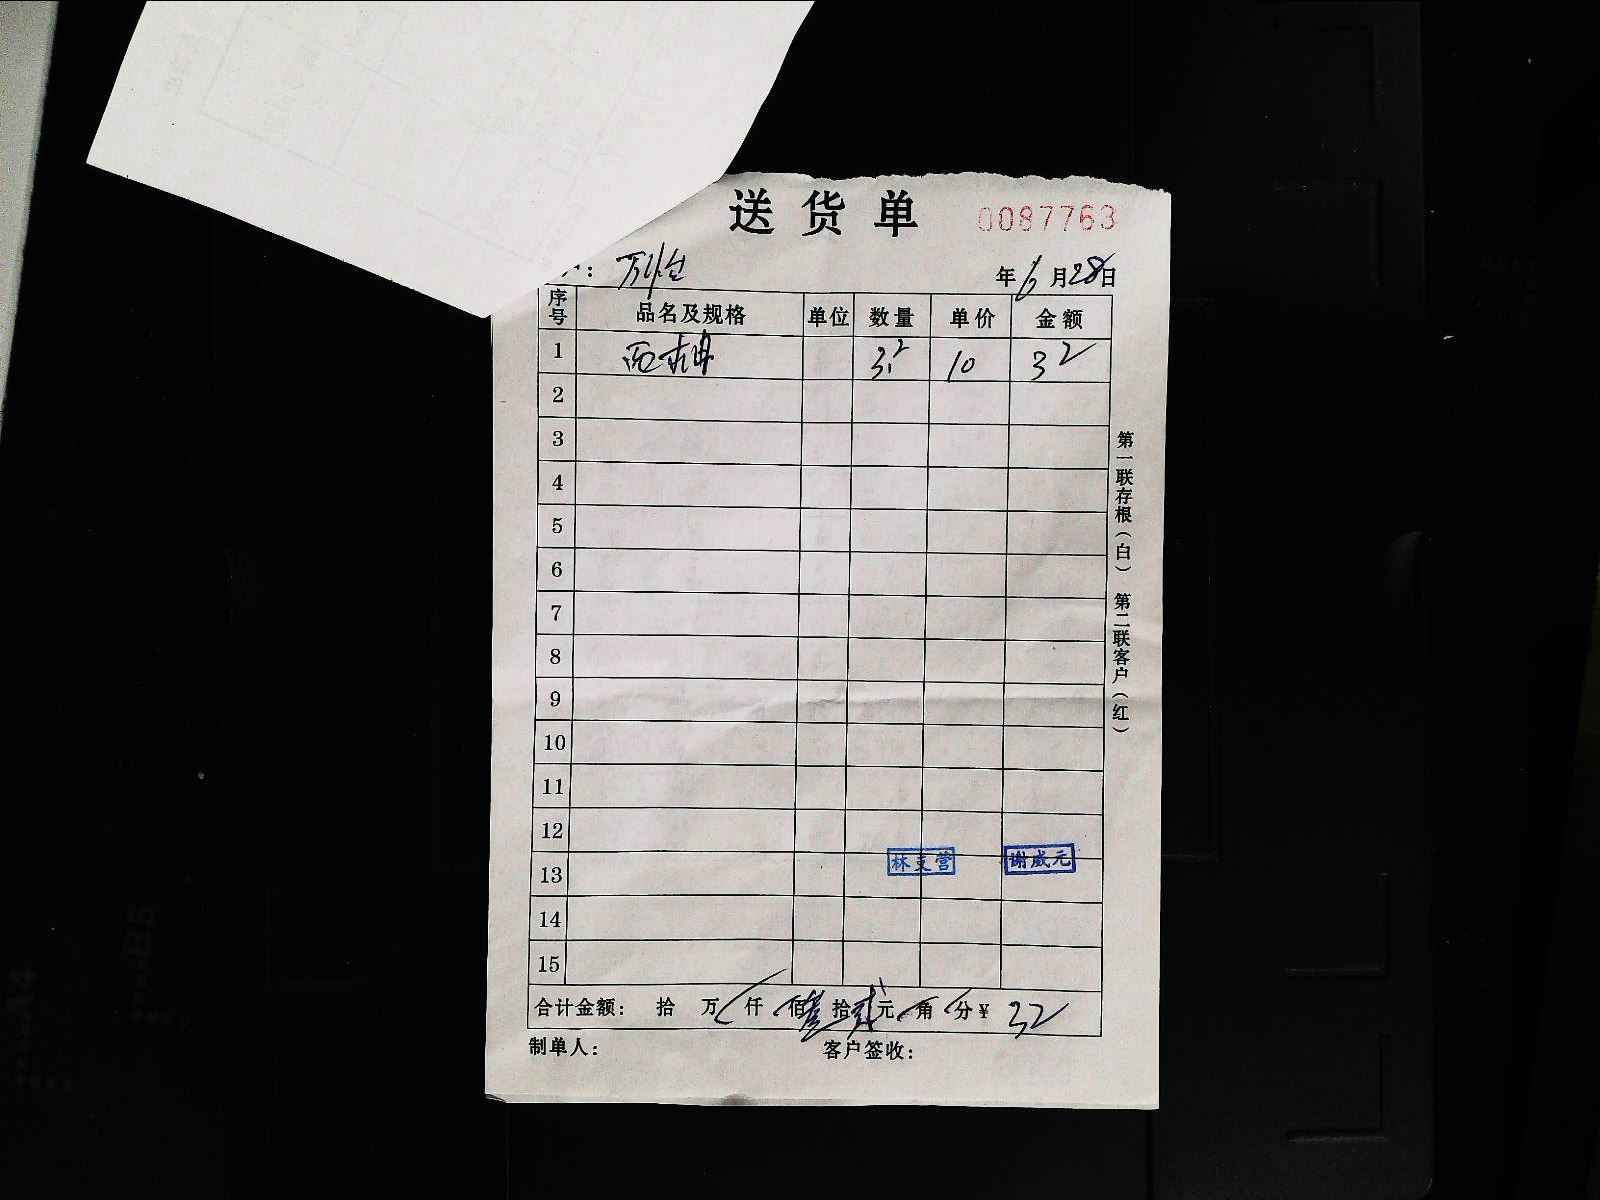 送货单 0087763
: 万 年6月28日
序号 品名及规格 单位 数量 单价 金额
1 西 3.2 10 32
2
3
4
5
6
7
8
9
10
11
12
13
14
15
林支营 谢成元
合计金额: 拾 万 仟 佰 叁 拾 贰 元 角 分 ¥ 32
制单人: 客户签收:
第一联存根(白) 第二联客户(红)
A4
B5